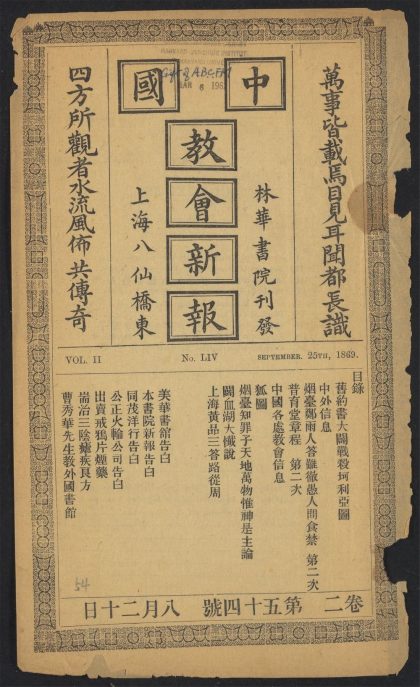 中國
教會新報
萬事皆載焉目見耳聞都長識
四方所觀者水流風佈共傳奇
林華書院刊發
上海八仙橋東
VOL. II
No. LIV
SEPTEMBER. 25TH, 1869.
目錄
舊約書大闢戰殺坷利亞圖
中外信息
烟臺鄭雨人答難徹愚人問食禁 第二次
普育堂章程 第二次
中國各處教會信息
狐圖
烟臺知罪子天地萬物惟神是主論
闢血湖大懺說
上海黃品三答路從周
美華書館告白
本書院新報告白
同茂洋行告白
公正火輪公司告白
出賣戒鴉片煙藥
耑治三陰瘧疾良方
曹秀華先生教外國書館
卷二 第五十四號 八月二十日
54